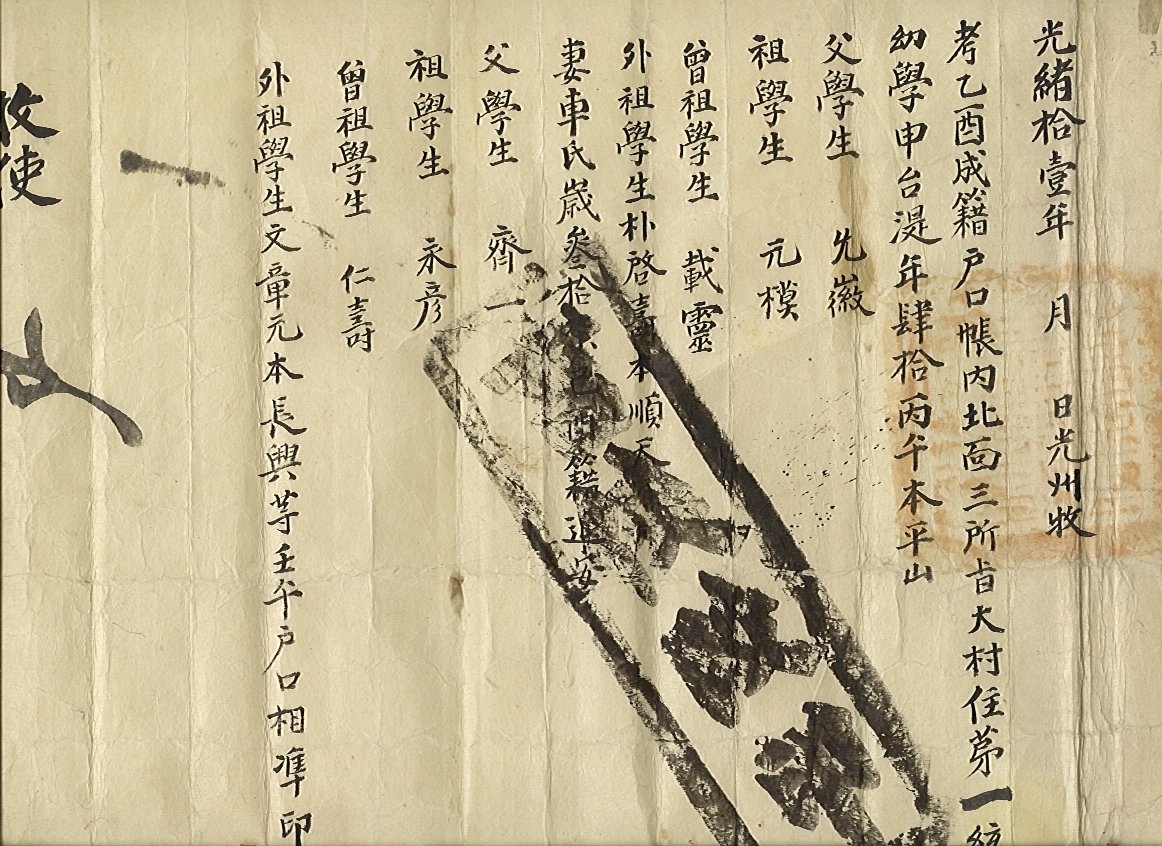 光緖拾壹年 月 日光州牧
考乙酉成籍戶口帳內北面三所旨大村住第一統
幼學申台湜年肆拾丙午本平山
父學生 允徽
祖學生 元模
曾祖學生 載靈
外祖學生朴啓壽本順天
妻車氏歲叁拾 己酉籍延安
父學生 齊一
祖學生 永彦
曾祖學生 仁壽
外祖學生文章元本長興等壬午戶口相凖印
牧使